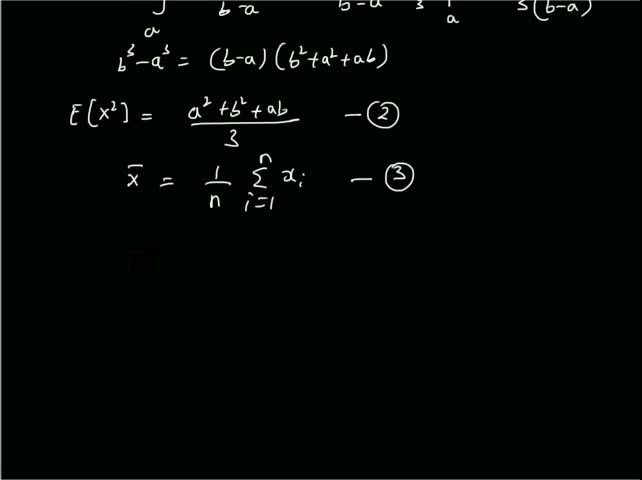 a b-a b-a 3 a 3(b-a)
b³-a³ = (b-a) (b²+a²+ab)
E[X²] = a²+b²+ab / 3 — ②
x̄ = 1/n Σ_{i=1}^{n} x_i — ③